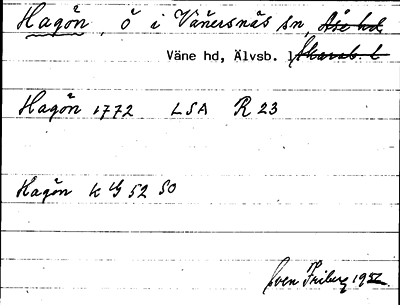 Hagön, ö i Vänersnäs sn, Åse hd,
Väne hd, Älvsb. l Skarab. l
Hagön 1772 LSA R 23
Hagön k 52 SO
Sven Friberg 1952